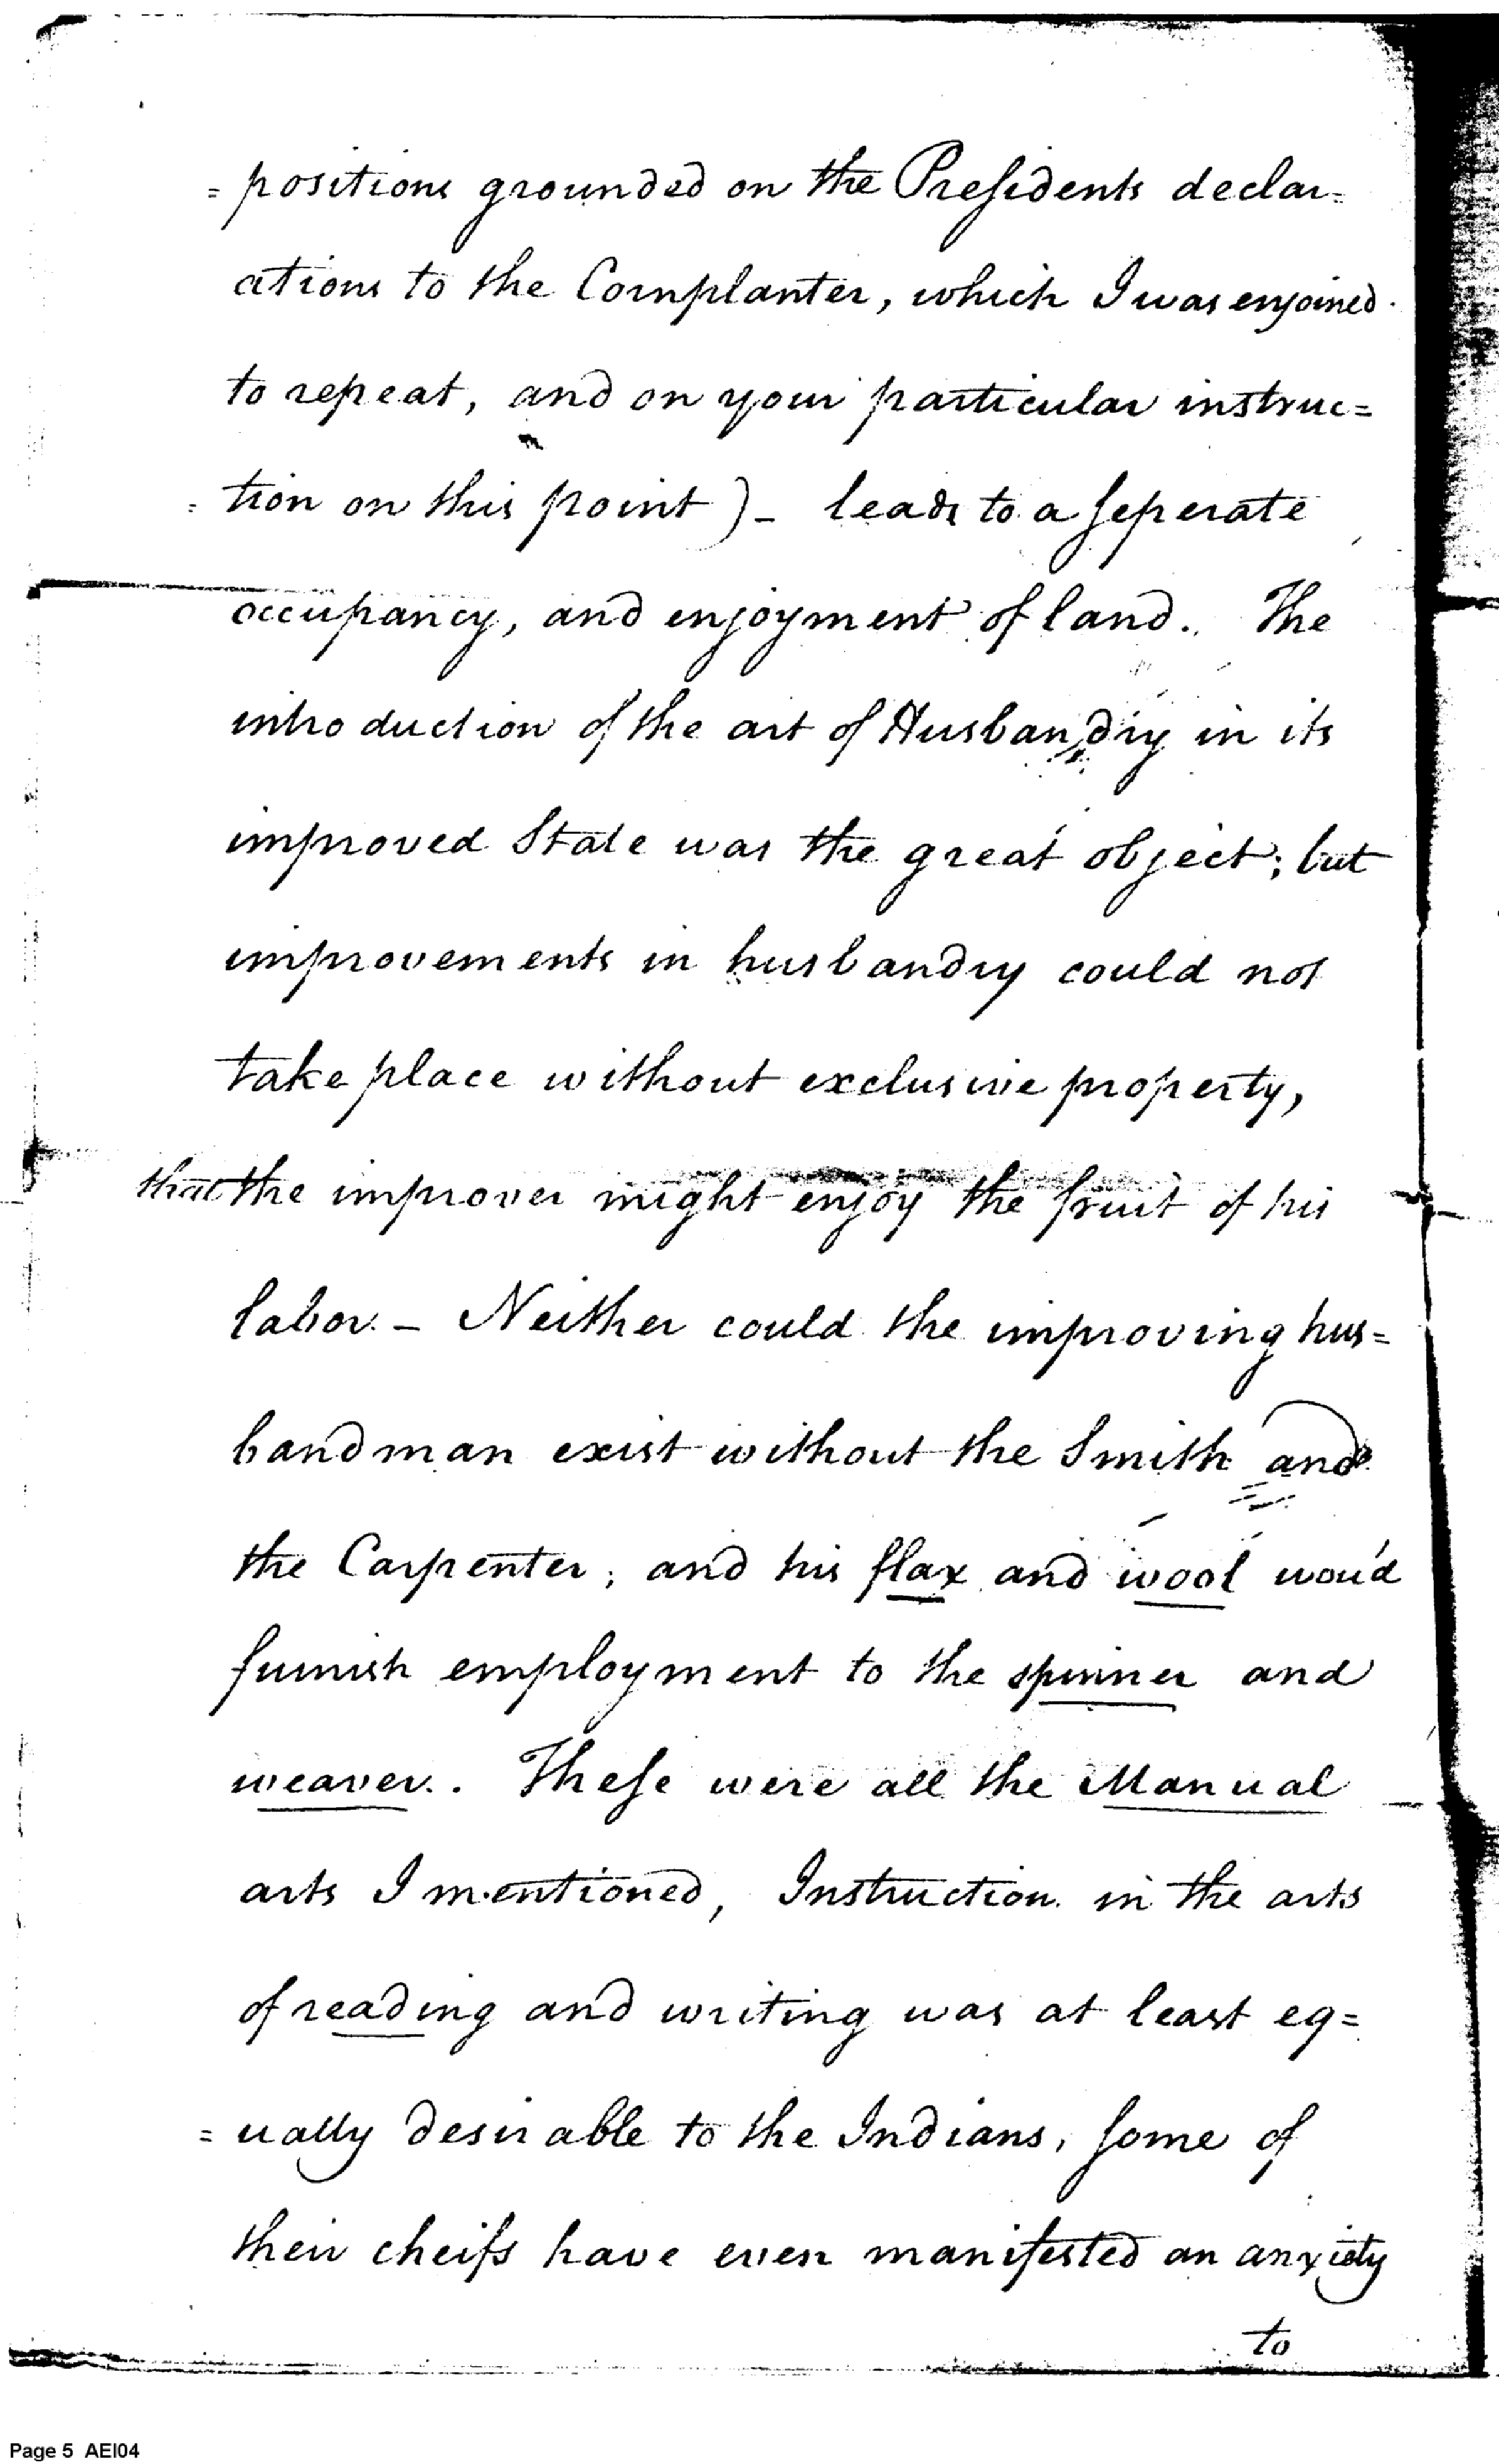 = positions grounded on the Presidents declar=
ations to the Cornplanter, which I was enjoined
to repeat, and on your particular instruc=
= tion on this point) - leads to a seperate
occupancy, and enjoyment of land. The
introduction of the art of Husbandry in its
improved State was the great object; but
improvements in husbandry could not
take place without exclusive property,
that the improver might enjoy the fruit of his
labor. - Neither could the improving hus=
bandman exist without the Smith and
the Carpenter; and his flax and wool wou'd
furnish employment to the spinner and
weaver. These were all the Manual
arts I mentioned, Instruction in the arts
of reading and writing was at least eq=
= ually desirable to the Indians, some of
their cheifs have even manifested an anxiety
to
Page 5 AEI04